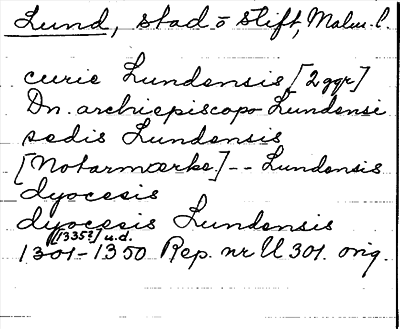 Lund, stad o Stift, Malm. l.
curie Lundensis [2 ggr]
Dn. archiepiscopo Lundensi
sedis Lundensis
[Notarmærke] -- Lundensis
dyocesis
dyocesis Lundensis
[1335?] u.d.
1301-1350 Rep. nr U 301. orig.